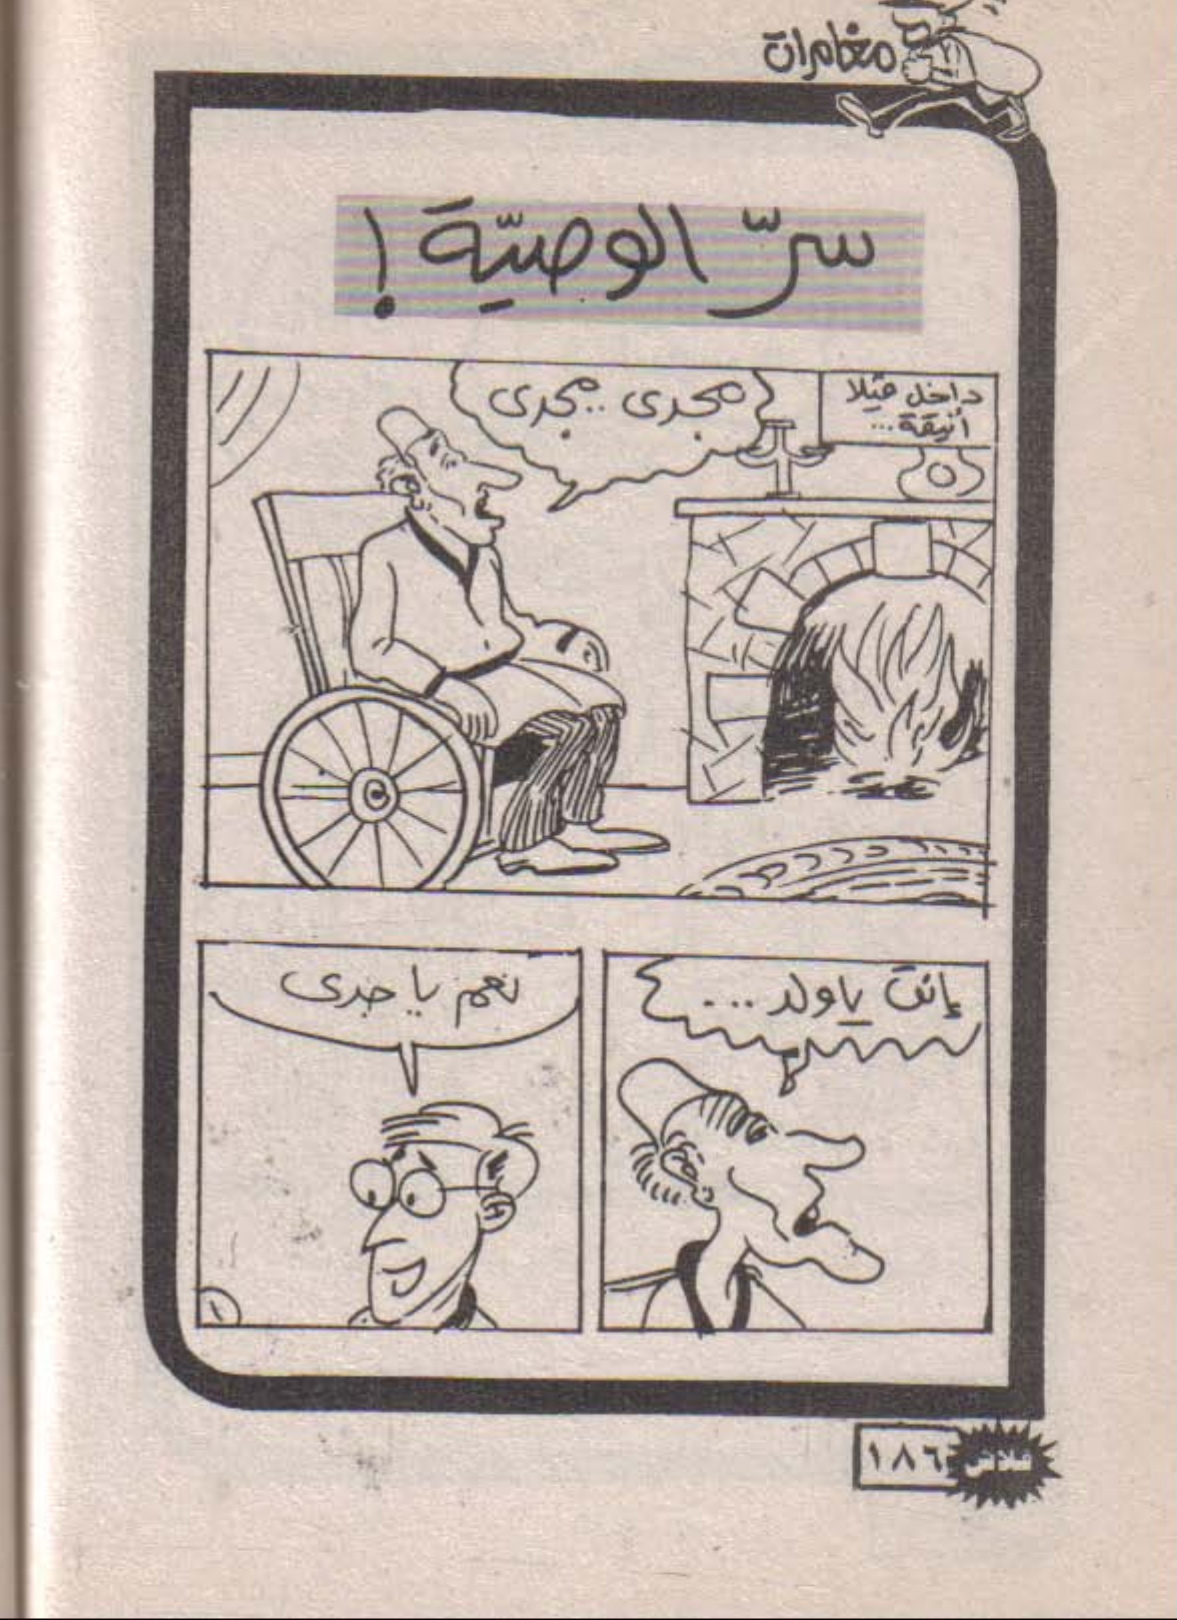 مغامرات
سرّ الوصيّة !
داخل ڤيلا
أنيقة...
مجدى .. مجدى
إنت ياولد ....
نعم يا جدى
١
١٨٦
فلاش